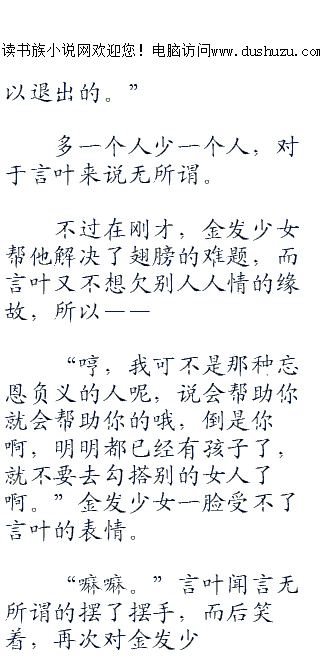 读书族小说网欢迎您！电脑访问www.dushuzu.com
以退出的。”
多一个人少一个人，对
于言叶来说无所谓。
不过在刚才，金发少女
帮他解决了翅膀的难题，而
言叶又不想欠别人人情的缘
故，所以——
“哼，我可不是那种忘
恩负义的人呢，说会帮助你
就会帮助你的哦，倒是你
啊，明明都已经有孩子了，
就不要去勾搭别的女人了
啊。”金发少女一脸受不了
言叶的表情。
“嘛嘛。”言叶闻言无
所谓的摆了摆手，而后笑
着，再次对金发少